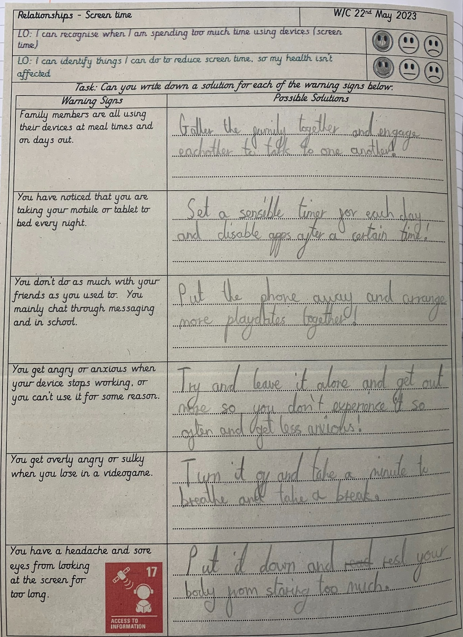 Relationships - Screen time
W/C 22nd May 2023
LO: I can recognise when I am spending too much time using devices (screen
time)
LO: I can identify things I can do to reduce screen time, so my health isn't
affected
Task: Can you write down a solution for each of the warning signs below.
Warning Signs
Possible Solutions
Family members are all using
their devices at meal times and
on days out.
Gather the family together and engage
eachother to talk to one another!
You have noticed that you are
taking your mobile or tablet to
bed every night.
Set a sensible timer for each day
and disable apps after a certain time!
You don't do as much with your
friends as you used to. You
mainly chat through messaging
and in school.
Put the phone away and arrange
more playdates together!
You get angry or anxious when
your device stops working, or
you can't use it for some reason.
Try and leave it alone and get out
more so you don't experience it so
often and get less anxious!
You get overly angry or sulky
when you lose in a videogame.
Turn it off and take a minute to
breathe and take a break.
You have a headache and sore
eyes from looking
at the screen for
too long.
Put it down and rest your
body from staring too much.
17
ACCESS TO
INFORMATION